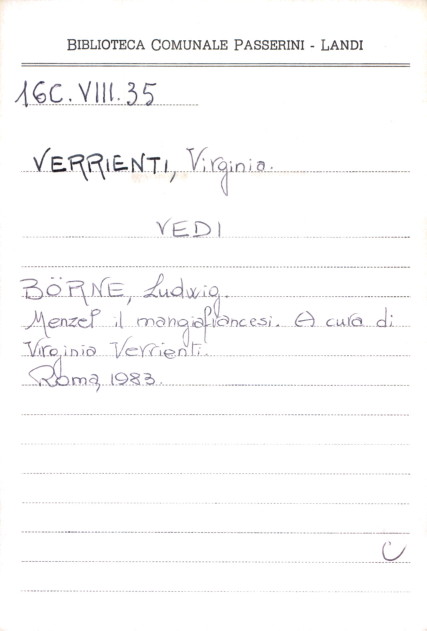 BIBLIOTECA COMUNALE PASSERINI - LANDI
16C.VIII.35
VERRIENTI, Virginia.
VEDI
BÖRNE, Ludwig.
Menzel il mangiafrancesi. A cura di
Virginia Verrienti.
Roma, 1983.